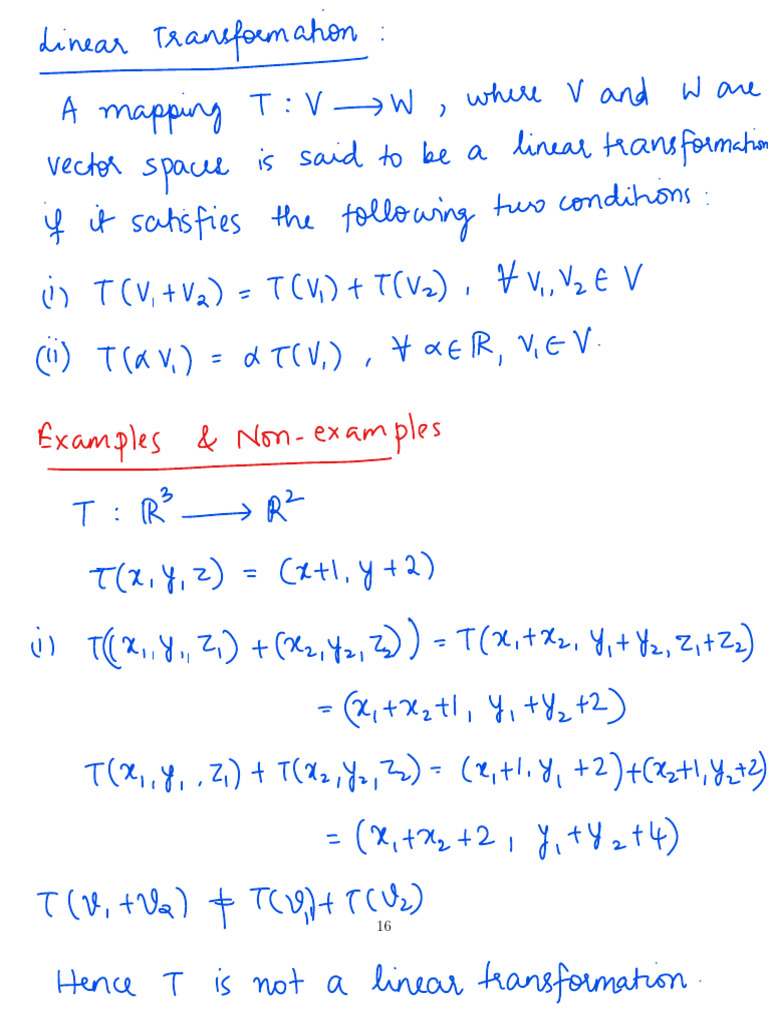 Linear Transformation :
A mapping T : V ⟶ W , where V and W are
vector spaces is said to be a linear transformation
if it satisfies the following two conditions :
(i) T(V₁+V₂) = T(V₁) + T(V₂) , ∀ V₁, V₂ ∈ V
(ii) T(αV₁) = αT(V₁) , ∀ α∈ℝ, V₁∈V.
Examples & Non-examples
T : ℝ³ ⟶ ℝ²
T(x, y, z) = (x+1, y+2)
(i) T((x₁, y₁, z₁) + (x₂, y₂, z₂)) = T(x₁+x₂, y₁+y₂, z₁+z₂)
= (x₁+x₂+1, y₁+y₂+2)
T(x₁, y₁, z₁) + T(x₂, y₂, z₂) = (x₁+1, y₁+2)+(x₂+1, y₂+2)
= (x₁+x₂+2, y₁+y₂+4)
T(v₁+v₂) ≠ T(v₁)+T(v₂)
16
Hence T is not a linear transformation.